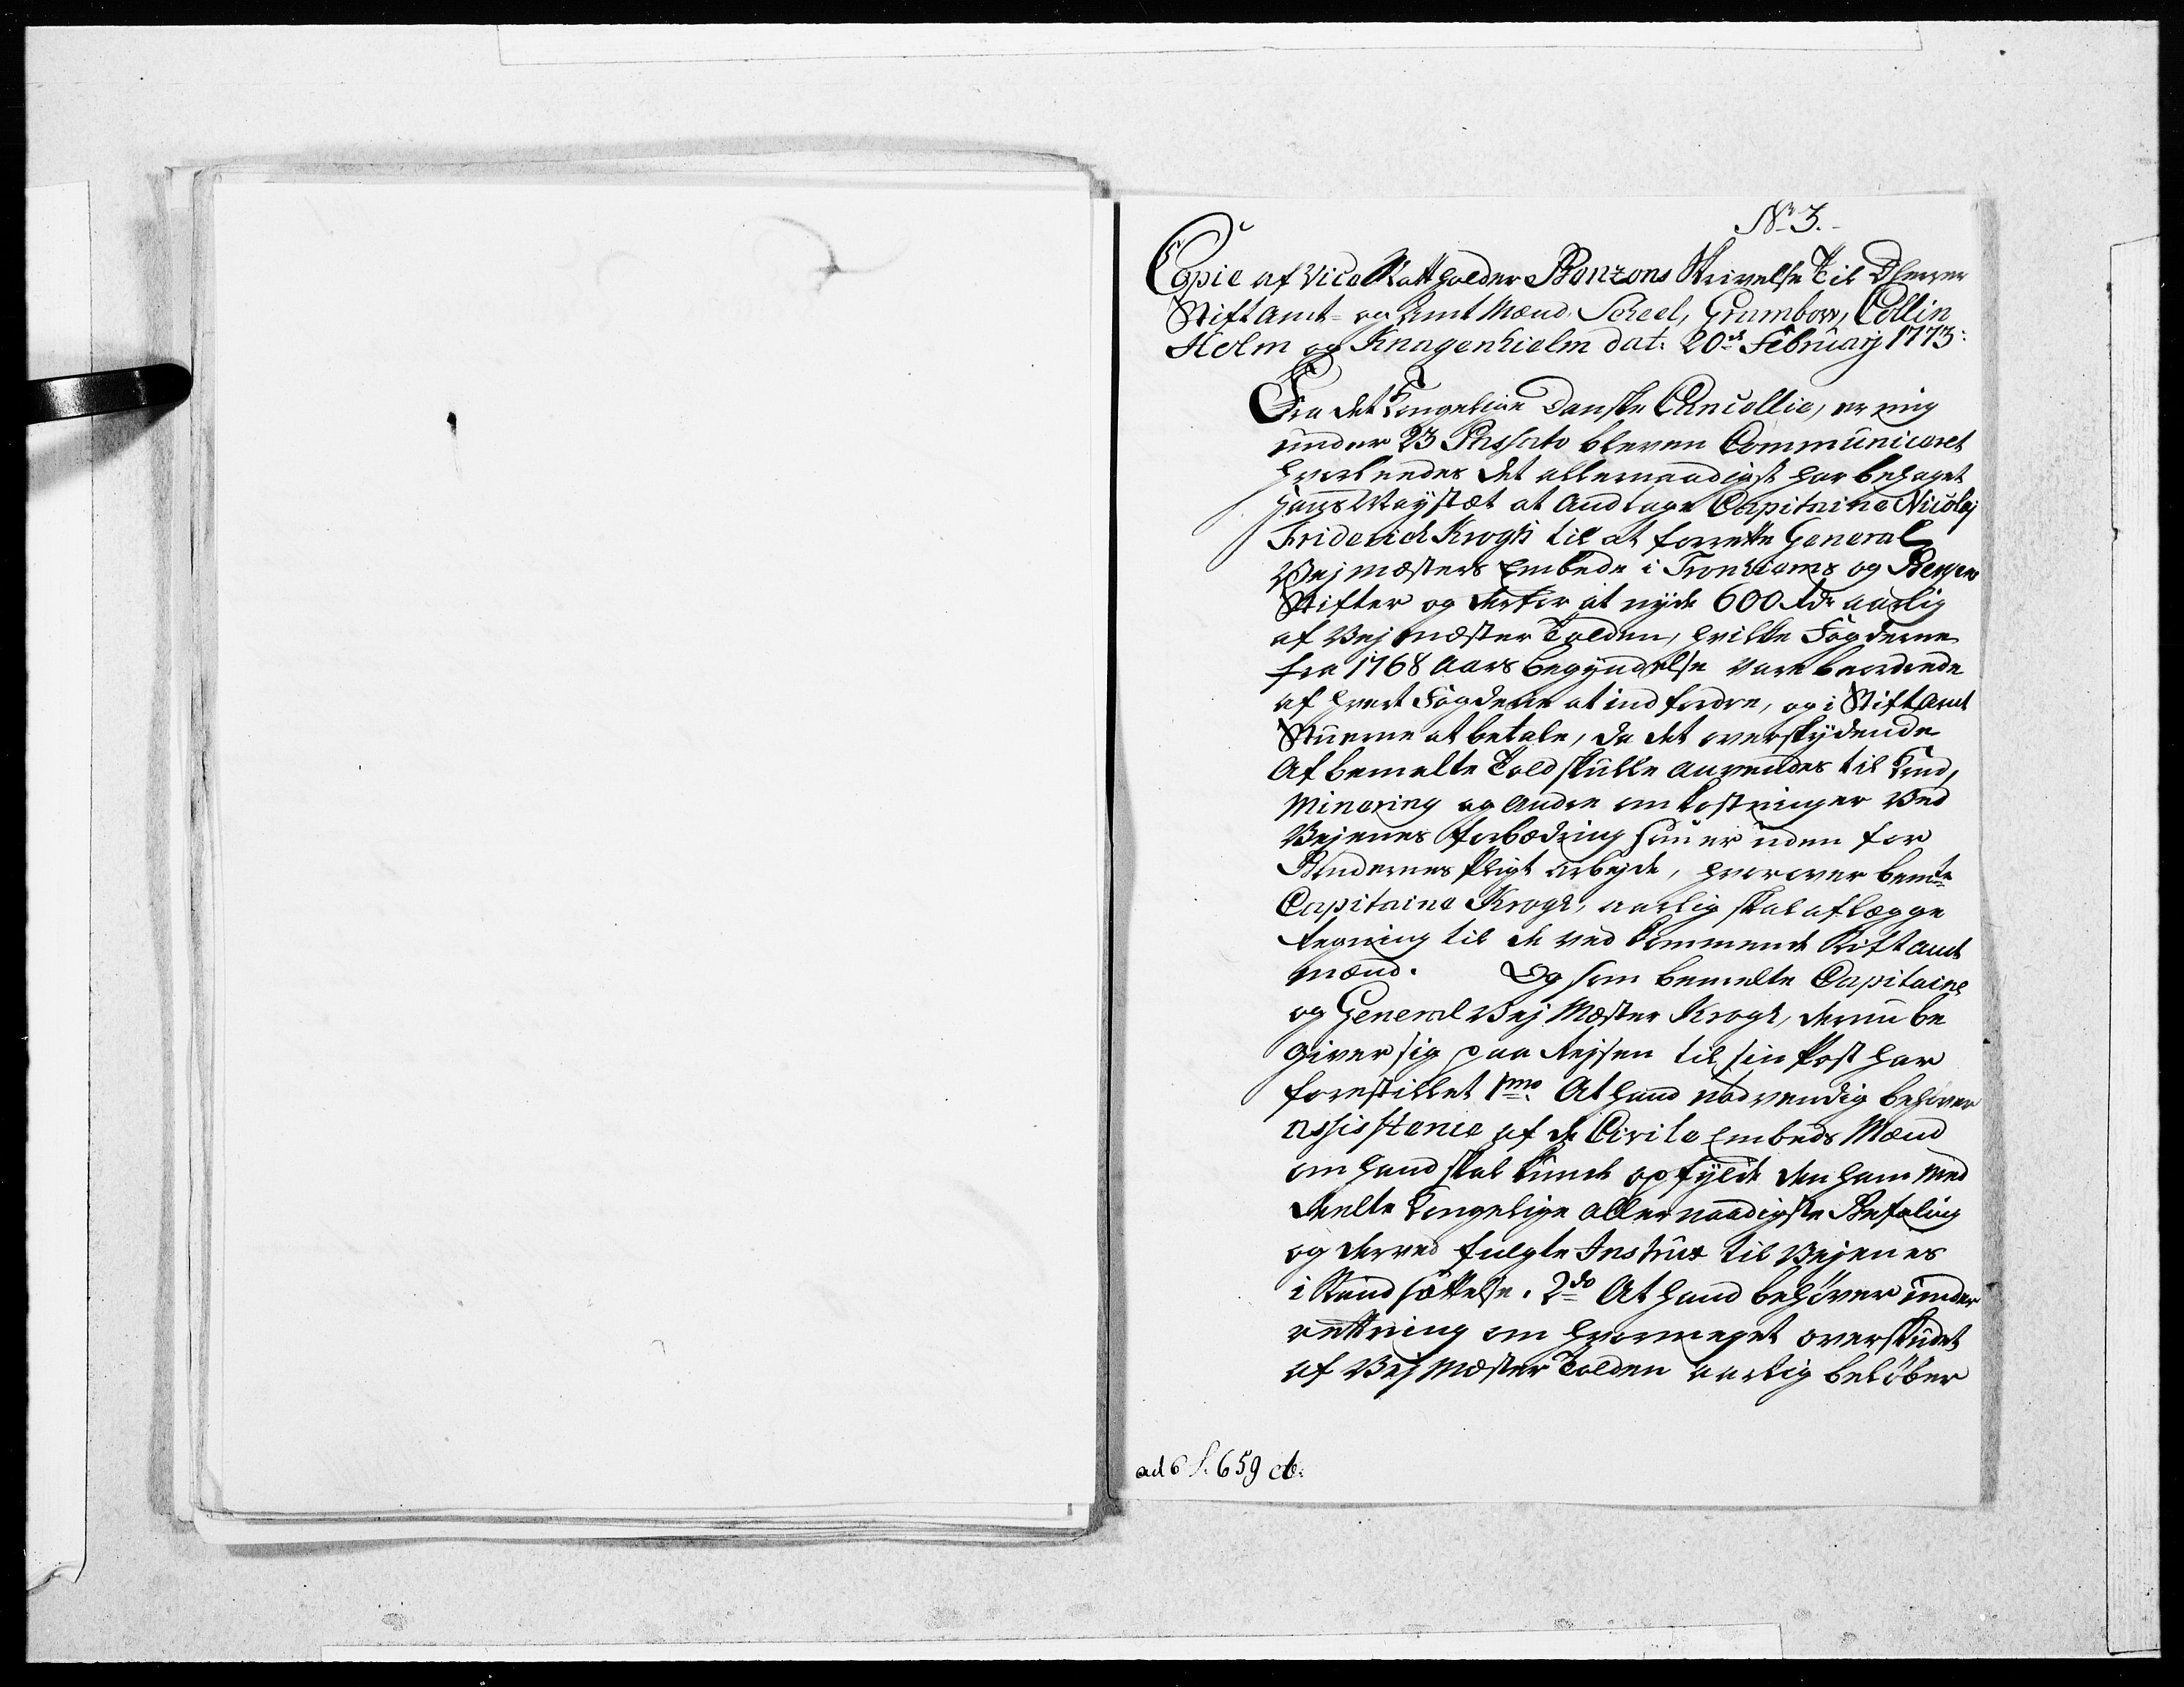 No 3.
Copie af Vice Statholder Benzons Skrivelse Til D'herrer
Stift Amt- og Amt Mænd, Scheel, Grambow, Collin
Holm og Knagenhielm dat. 20de Febrüarij 1773:
Fra det Kongelige Danske Cancellie, er mig
under 23 Passato bleven Commüniceret
hvorledes det allernaadigst har behaget
Hans Mayestæt at Andtage Capitaine Nicolaj
Friderich Krogh til at forrette General
Vejmesters Embede i Tronhiems og Bergens
Stifter og derfor at nyde 600 Rdr aarlig
af Vejmester Tolden, hvilke Fogderne
fra 1768 Aars begyndelse vare beordrede
af hvert Fogderie at indfordre, og i Stiftamt
Stuerne at betale, da det overskydende
Af bemelte Told skulle anvendes til Krud,
Minering og andre omkostninger ved
Vejenes forbedring som er uden for
Bøndernes Pligt arbejde, hvorover bemte
Capitaine Krogh, aarlig skal aflægge
Regning til de ved kommende Stiftamt
mænd. Og som bemelte Capitaine
og General Vej Mester Krogh, der nu be
giver sig paa Rejsen til sin Post har
forestillet 1mo At hand nødvendig behøver
assistence af de Civile Embeds Mænd
om hand skal kunde opfylde den ham med
deelte Kongelige allernaadigste Befaling
og derved fulgte Instrux til Vejenes
i Stand sættelse. 2do At hand behøver under
rettning om hvormeget overskudet
af Vej Mester Tolden aarlig beløber
ad 6 f. 659